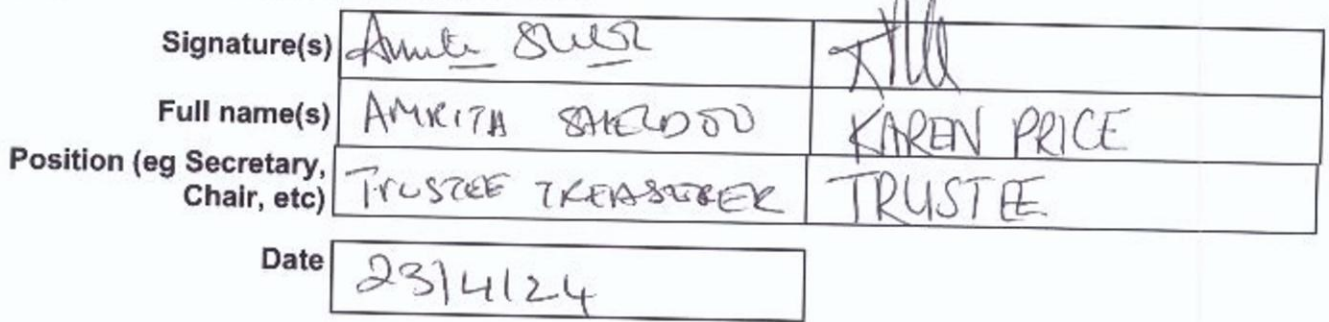 Signature(s)
Full name(s) AMRITA KAREN PRICE
Position (eg Secretary,
Chair, etc) TRUSTEE TREASURER TRUSTEE
Date 23/4/24